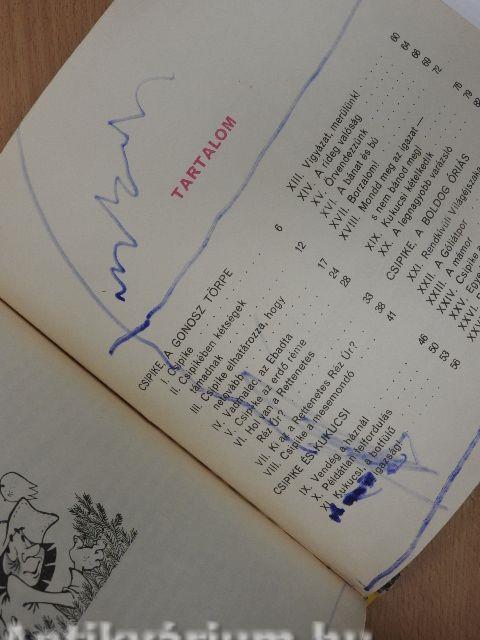 TARTALOM
CSIPIKE A GONOSZ TÖRPE
I. Csipike . . . . 6
II. Csipikében kétségek
támadnak . . . . 12
III. Csipike elhatározza, hogy
. . . . 17
IV. Vadhalász az Ebadta . . . . 24
V. Csipike az erdő réme . . . . 28
VI. Hol van a Rettenetes
Réz Úr? . . . . 33
VII. Ki az a rettenetes Réz Úr? . . . . 38
VIII. Csipike a mesemondó . . . . 41
CSIPIKE ÉS KUKUCSI
IX. Vendég a háznál . . . . 46
X. Példátlan felfordulás . . . . 50
XI. Kukucsi, a botfülű . . . . 53
igazság . . . . 56
XIII. Vigyázat, merülünk! . . . . 60
XIV. A rideg valóság . . . . 64
XV. Örvendezzünk . . . . 66
XVI. A bánat és bú . . . . 69
XVII. Borzalom! . . . . 72
XVIII. Mondd meg az igazat —
s nem bánod meg! . . . . 76
XIX. Kukucsi kételkedik . . . . 79
XX. A legnagyobb varázsló
CSIPIKE, A BOLDOG ÓRIÁS
XXI. Rendkívüli Világéjszaka
XXII. A Góliátpor
XXIII. A mámor
XXIV. Csipike
XXV.
Antikvárium.hu